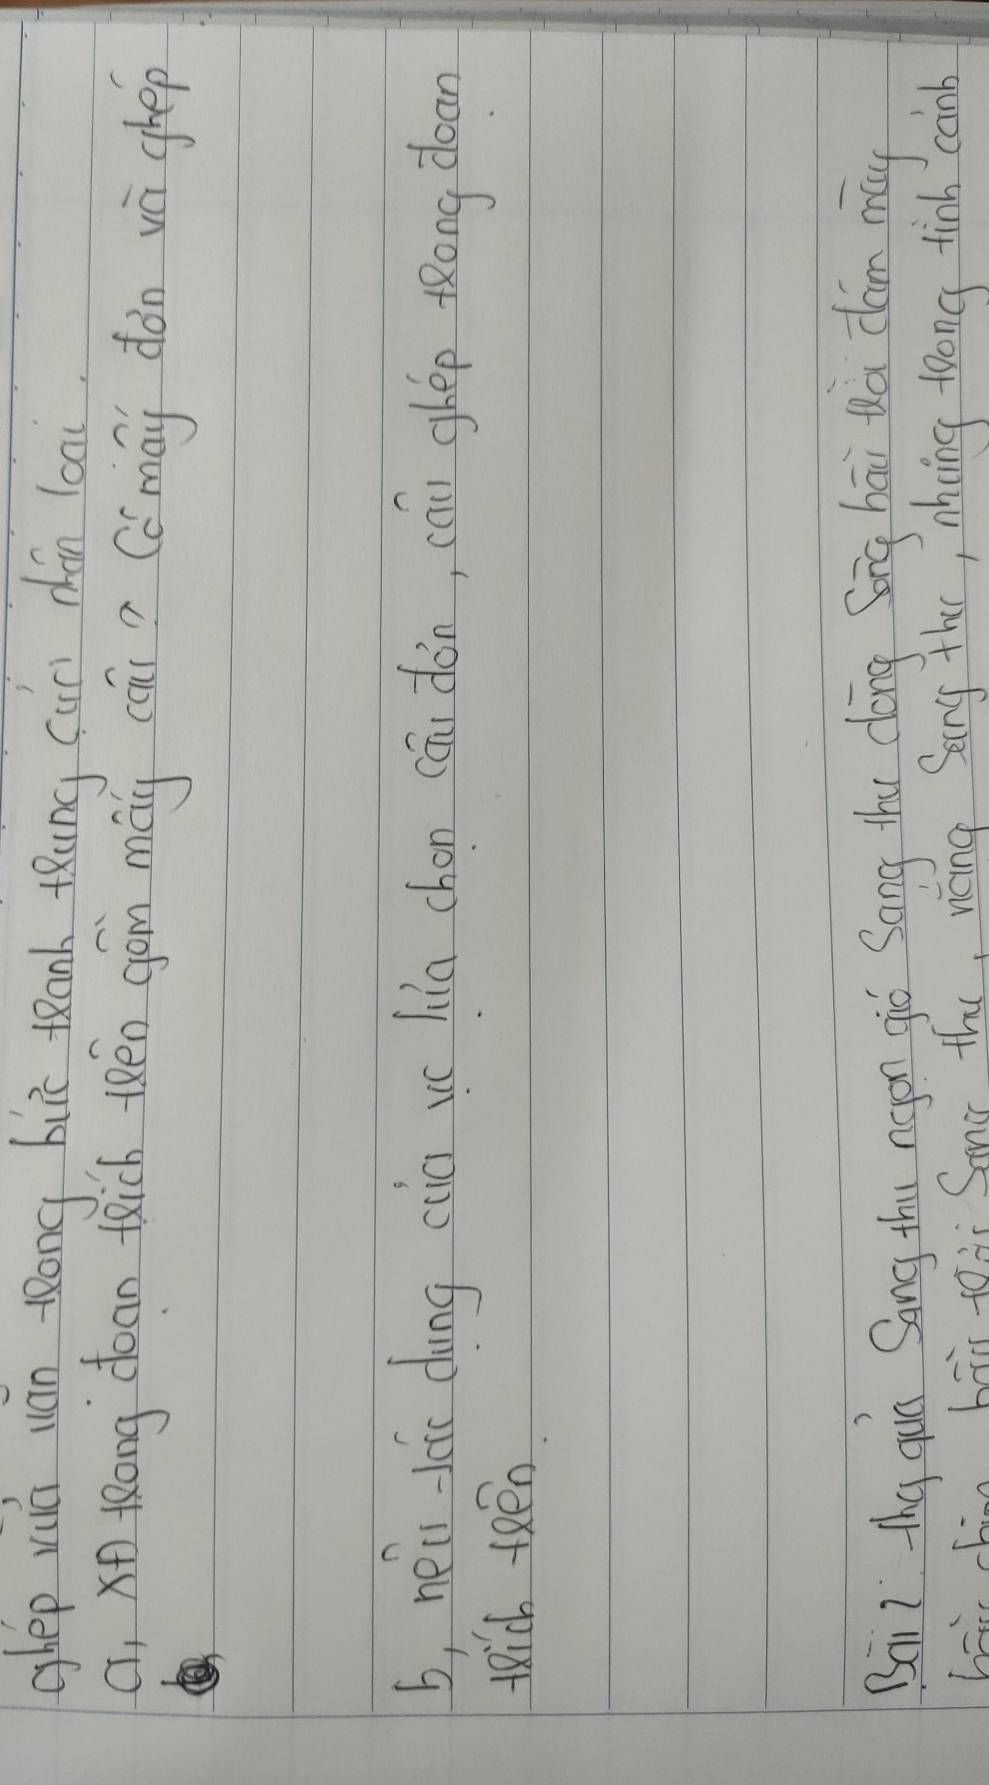 ghép vừa vặn trong bức tranh trung của nhân loại.
a, XĐ trong đoạn trích trên gồm mấy câu? Có mấy đơn và ghép
b, nêu tác dụng của vc lựa chọn câu đơn, câu ghép trong đoạn
trích trên.
Bài 2: thq quả Sang thu ngọn gió Sang thu dòng Sông bầu trời đám mây
bầu trời Sang thu, nắng Sang thu, nhưng trong tình cảnh